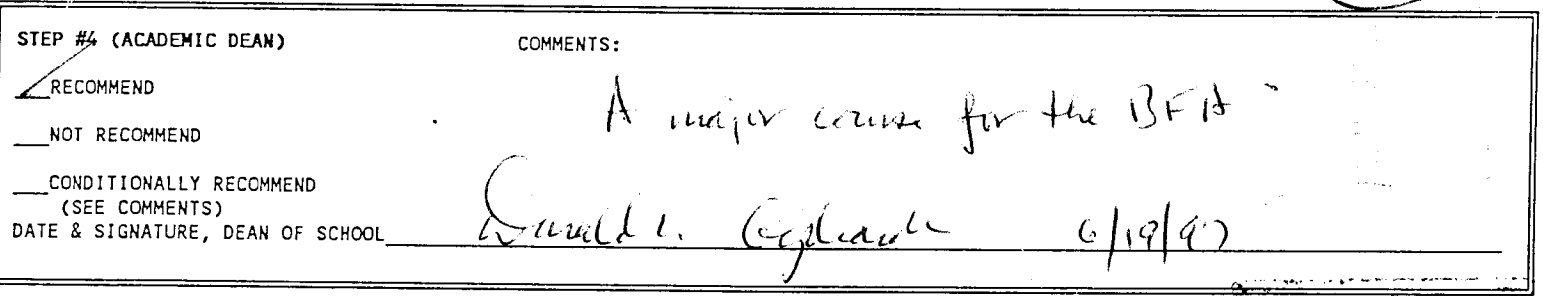 STEP #4 (ACADEMIC DEAN) COMMENTS:
RECOMMEND
A major course for the BFA
NOT RECOMMEND
CONDITIONALLY RECOMMEND
(SEE COMMENTS)
DATE & SIGNATURE, DEAN OF SCHOOL Donald L. 6/19/97